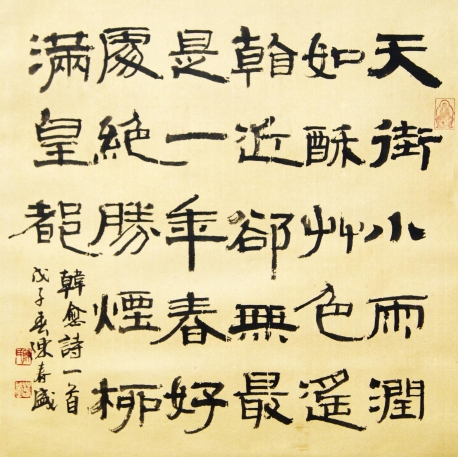 天街小雨潤
如酥艸色遥
看近郤無最
是一年春好
處絶勝煙柳
滿皇都
韓愈詩一首
戊子春陳春盛